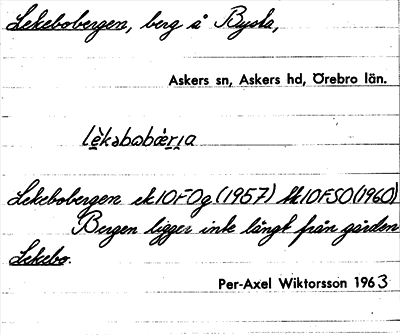 Lekebobergen, berg å Bysta,
Askers sn, Askers hd, Örebro län.
lèkabobæria
Lekebobergen ek 10F0g (1957) tk 10FSO (1960)
Bergen ligger inte långt från gården
Lekebo.
Per-Axel Wiktorsson 1963